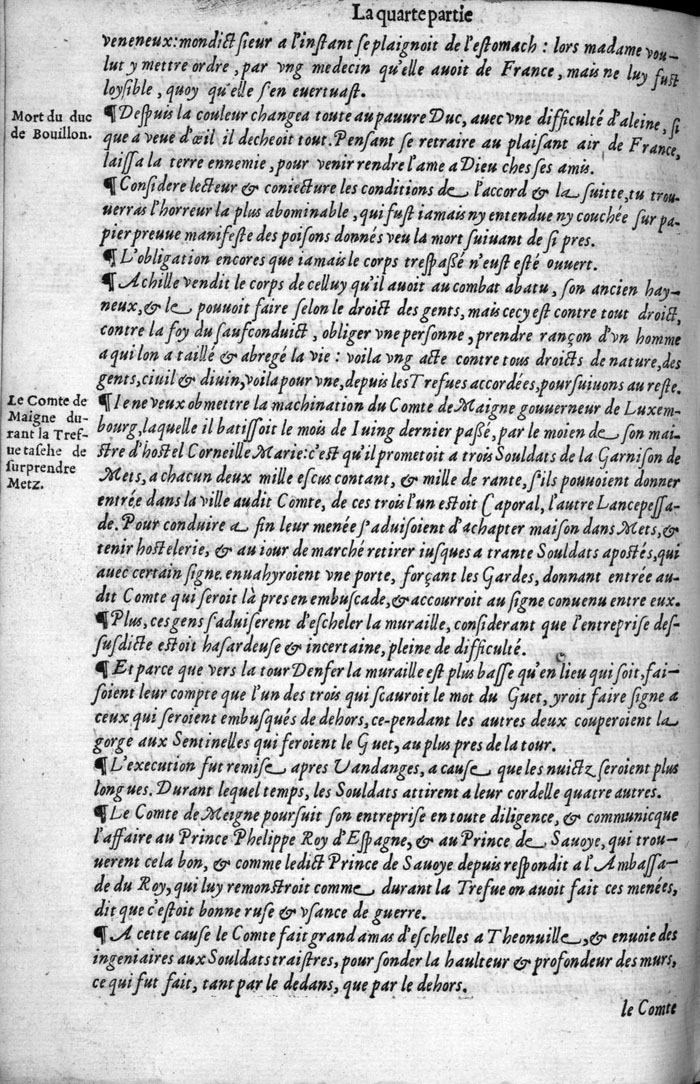 La quarte partie
veneneux: mondict sieur a l'instant se plaignoit de l'estomach : lors madame vou-
lut y mettre ordre, par vng medecin qu'elle auoit de France, mais ne luy fust
loysible, quoy qu'elle s'en euertuast.
Mort du duc
de Bouillon.
¶ Despuis la couleur changea toute au pauure Duc, auec vne difficulté d'aleine, si
que a veue d'œil il decheoit tout. Pensant se retraire au plaisant air de France,
laissa la terre ennemie, pour venir rendre l'ame a Dieu ches ses amis.
¶ Considere lecteur & coniecture les conditions de l'accord & la suitte, tu trou-
uerras l'horreur la plus abominable, qui fust iamais ny entendue ny couchée sur pa-
pier preuue manifeste des poisons donnés veu la mort suiuant de si pres.
¶ L'obligation encores que iamais le corps trespaßé n'eust esté ouuert.
¶ Achille vendit le corps de celluy qu'il auoit au combat abatu, son ancien hay-
neux, & le pouuoit faire selon le droict des gents, mais cecy est contre tout droict,
contre la foy du saufconduict, obliger vne personne, prendre rançon d'vn homme
a qui lon a taillé & abregé la vie : voila vng acte contre tous droicts de nature, des
gents, ciuil & diuin, voila pour vne, depuis les Trefues accordées, poursuiuons au reste.
Le Comte de
Maigne du-
rant la Tref-
ue tasche de
surprendre
Metz.
¶ Ie ne veux obmettre la machination du Comte de Maigne gouuerneur de Luxem-
bourg, laquelle il batissoit le mois de Iuing dernier paßé, par le moien de son mai-
stre d'hostel Corneille Marie: c'est qu'il prometoit a trois Souldats de la Garnison de
Mets, a chacun deux mille escus contant, & mille de rante, s'ils pouuoient donner
entrée dans la ville audit Comte, de ces trois l'un estoit Caporal, l'autre Lancepessa-
de. Pour conduire a fin leur menée s'aduisoient d'achapter maison dans Mets, &
tenir hostelerie, & au iour de marché retirer iusques a trante Souldats apostés, qui
auec certain signe enuahyroient vne porte, forçant les Gardes, donnant entrée au-
dit Comte qui seroit là pres en embuscade, & accourroit au signe conuenu entre eux.
¶ Plus, ces gens s'aduiserent d'escheler la muraille, considerant que l'entreprise des-
susdicte estoit hasardeuse & incertaine, pleine de difficulté.
¶ Et parce que vers la tour Denfer la muraille est plus basse qu'en lieu qui soit, fai-
soient leur compte que l'un des trois qui scauroit le mot du Guet, yroit faire signe a
ceux qui seroient embusqués de dehors, ce-pendant les autres deux couperoient la
gorge aux Sentinelles qui feroient le Guet, au plus pres de la tour.
¶ L'execution fut remise apres Vandanges, a cause que les nuictz seroient plus
longues. Durant lequel temps, les Souldats attirent a leur cordelle quatre autres.
¶ Le Comte de Meigne poursuit son entreprise en toute diligence, & communicque
l'affaire au Prince Phelippe Roy d'Espagne, & au Prince de Sauoye, qui trou-
uerent cela bon, & comme ledict Prince de Sauoye depuis respondit a l'Ambassa-
de du Roy, qui luy remonstroit comme durant la Trefue on auoit fait ces menées,
dit que c'estoit bonne ruse & vsance de guerre.
¶ A cette cause le Comte fait grand amas d'eschelles a Theonuille, & enuoie des
ingeniaires aux Souldats traistres, pour sonder la haulteur & profondeur des murs,
ce qui fut fait, tant par le dedans, que par le dehors.
le Comte